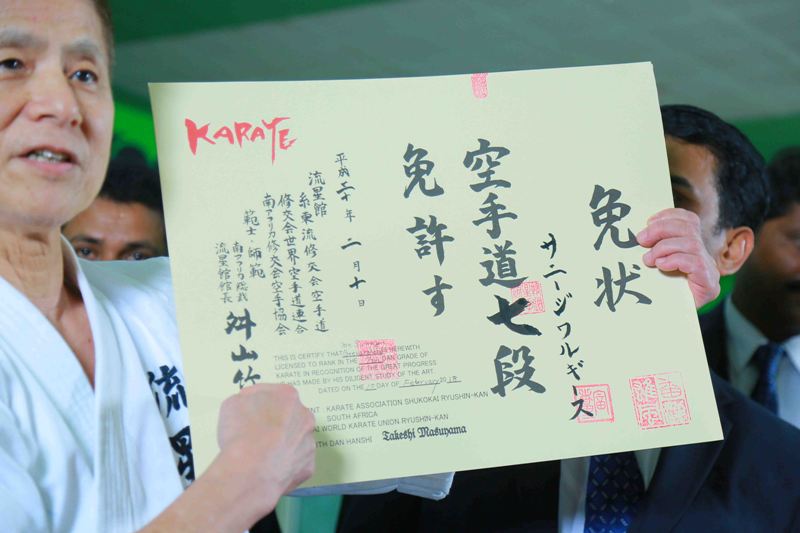 KARATE
免状
サニージワルギース
空手道七段
免許す
平成三十年 二月十日
流星館
糸東流修交会空手道
修交会世界空手道連合
南アフリカ修交会空手協会
範士・師範
南アフリカ総裁
流星館館長
舛山
THIS IS CERTIFY THAT HEREWITH
LICENSED TO RANK IN THE DAN GRADE OF
KARATE IN RECOGNITION OF THE GREAT PROGRESS
HAS MADE BY HIS DILIGENT STUDY OF THE ART.
DATED ON THE 10 DAY OF February 2018
: KARATE ASSOCIATION SHUKOKAI RYUSHIN-KAN
SOUTH AFRICA
WORLD KARATE UNION RYUSHIN-KAN
DAN HANSHI Takeshi Masuyama
流星